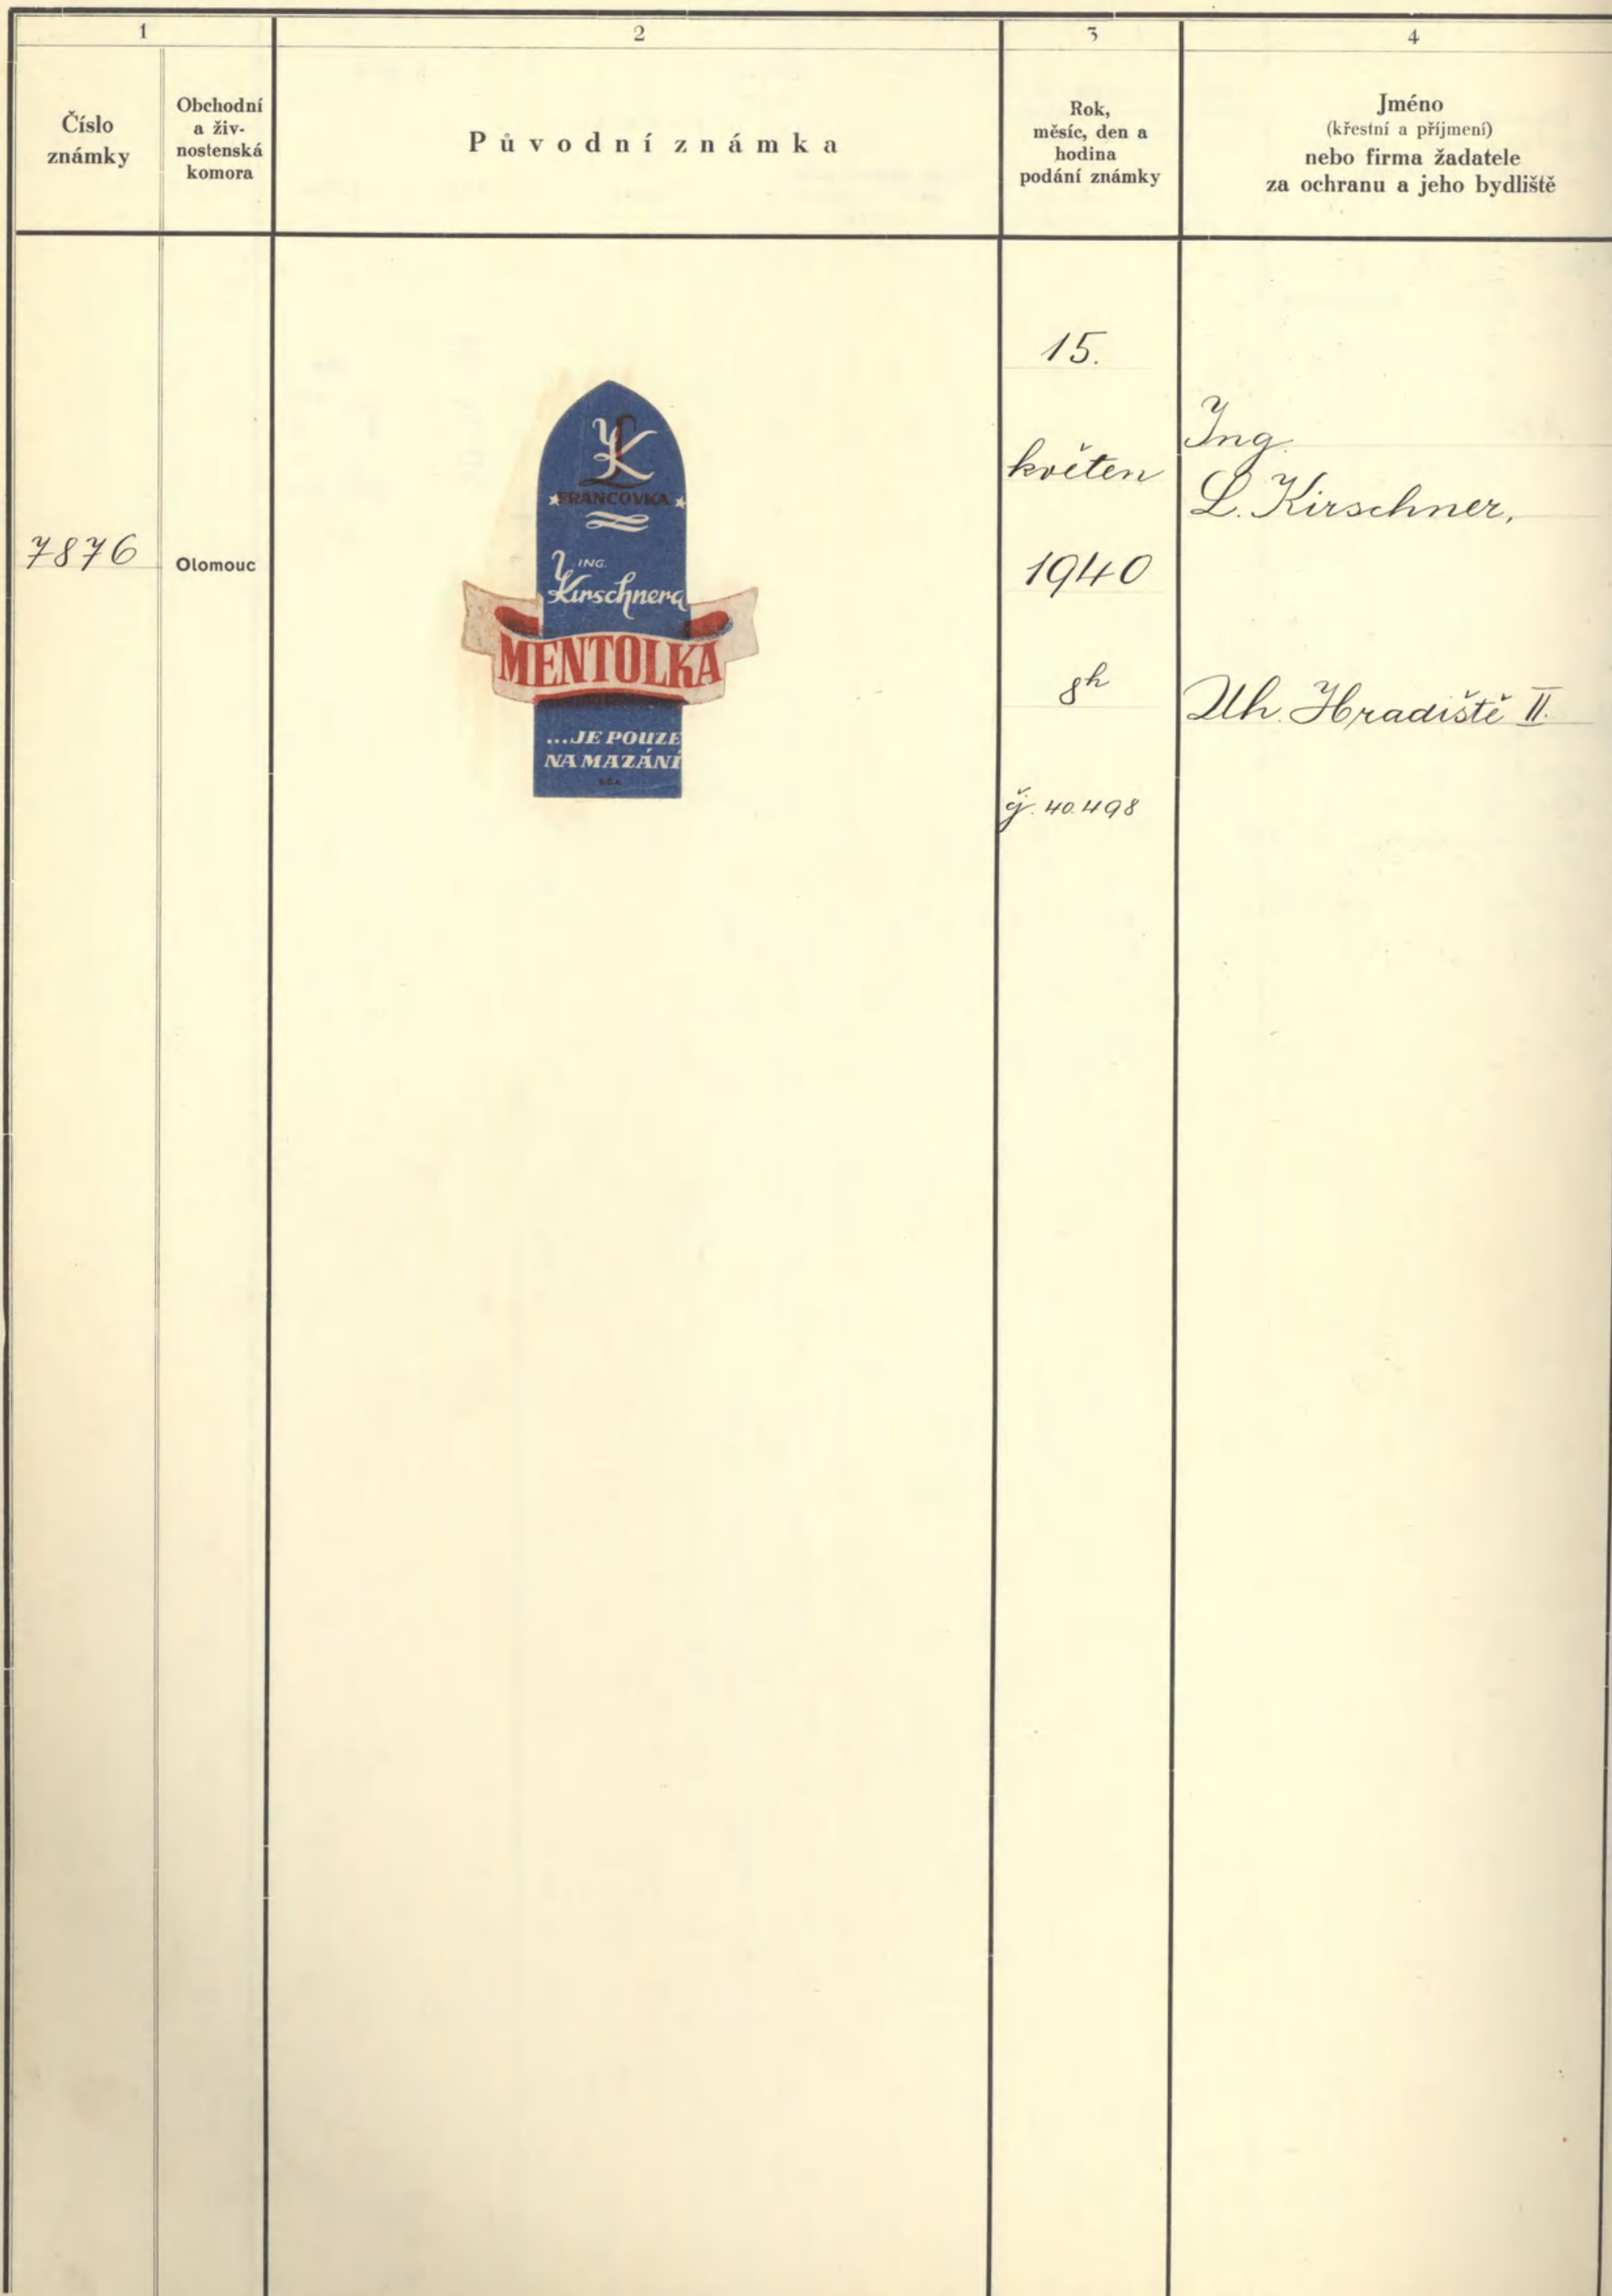 1
2
3
4
Číslo
známky
Obchodní
a živ-
nostenská
komora
Původní známka
Rok,
měsíc, den a
hodina
podání známky
Jméno
(křestní a příjmení)
nebo firma žadatele
za ochranu a jeho bydliště
7876
Olomouc
LK
FRANCOVKA
ING.
Kirschnera
MENTOLKA
...JE POUZE
NA MAZÁNÍ
15.
květen
1940
8h
čj. 40.498
Ing.
L. Kirschner,
Uh. Hradiště II.